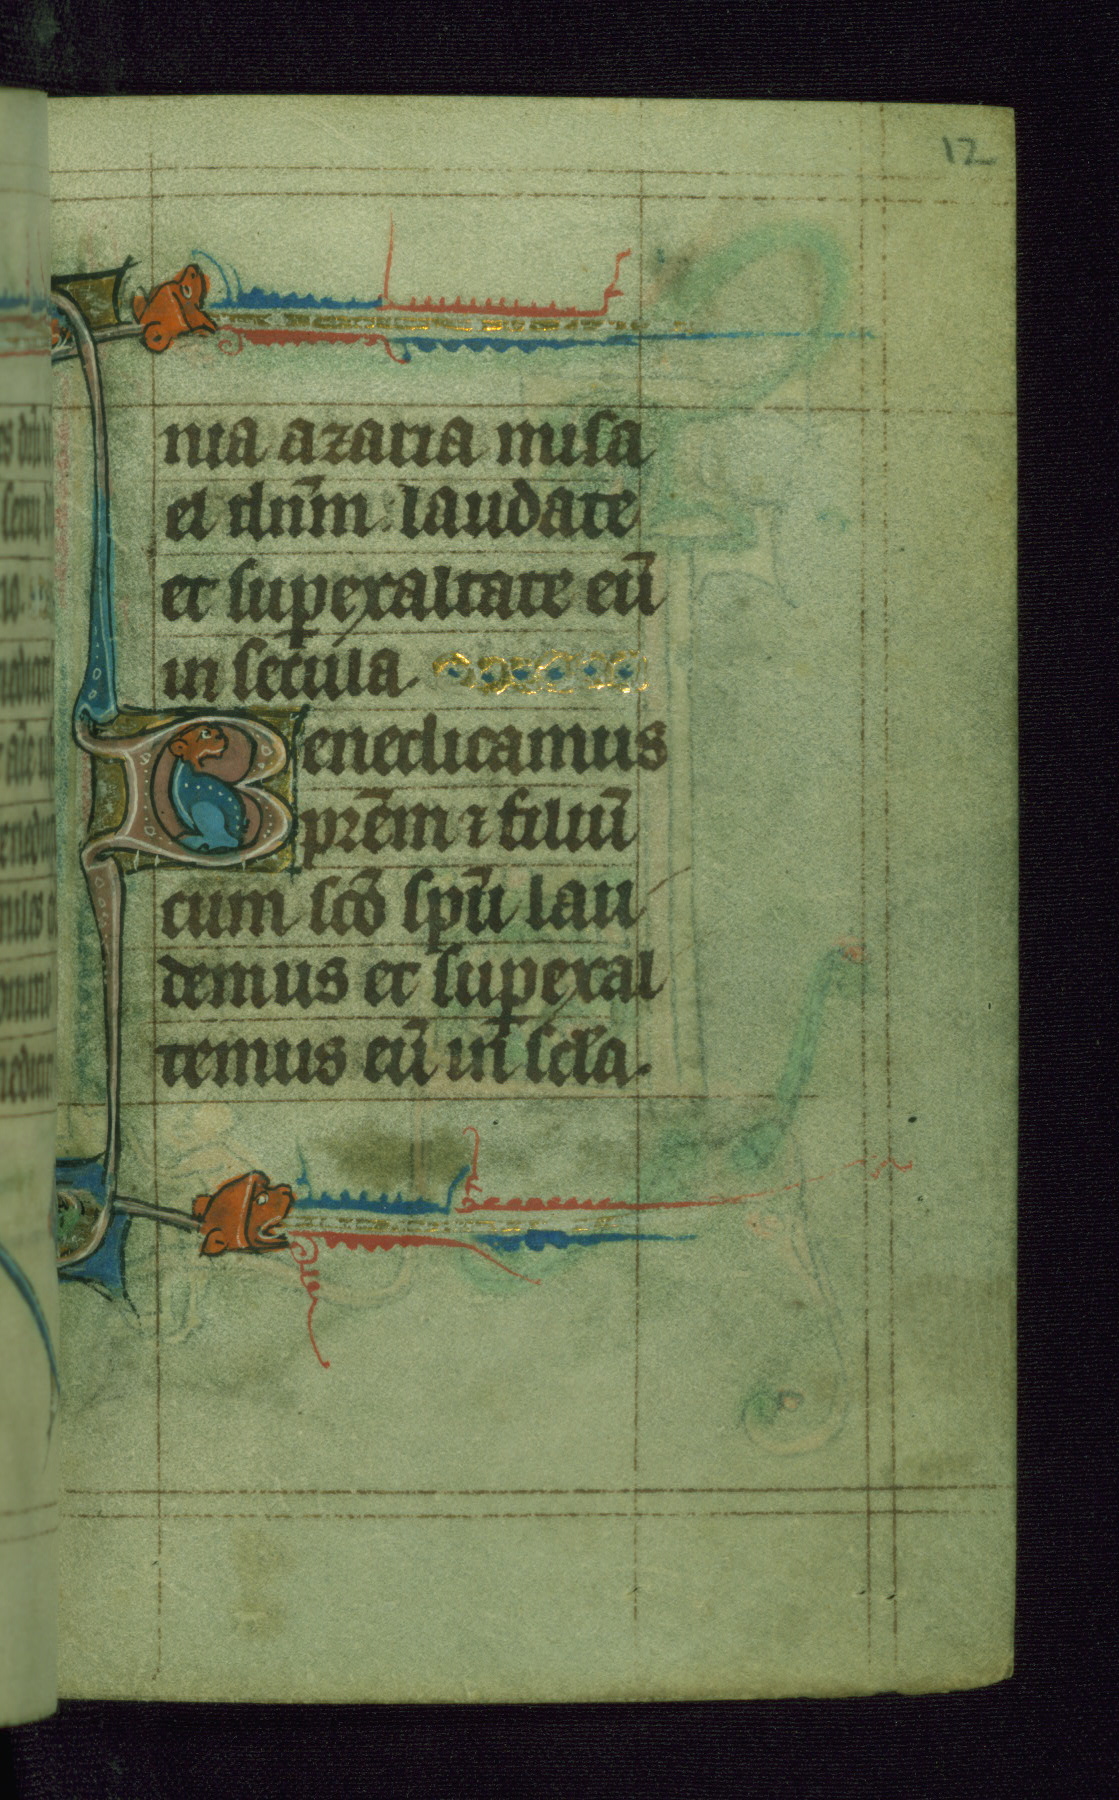 12
nia azaria misa
el dnm̄ laudate
et superaltate eū
in secula
Benedicamus
pr̄em ⁊ filiū
cum sc̄o sp̄u lau
demus et superal
temus eū in sc̄la.